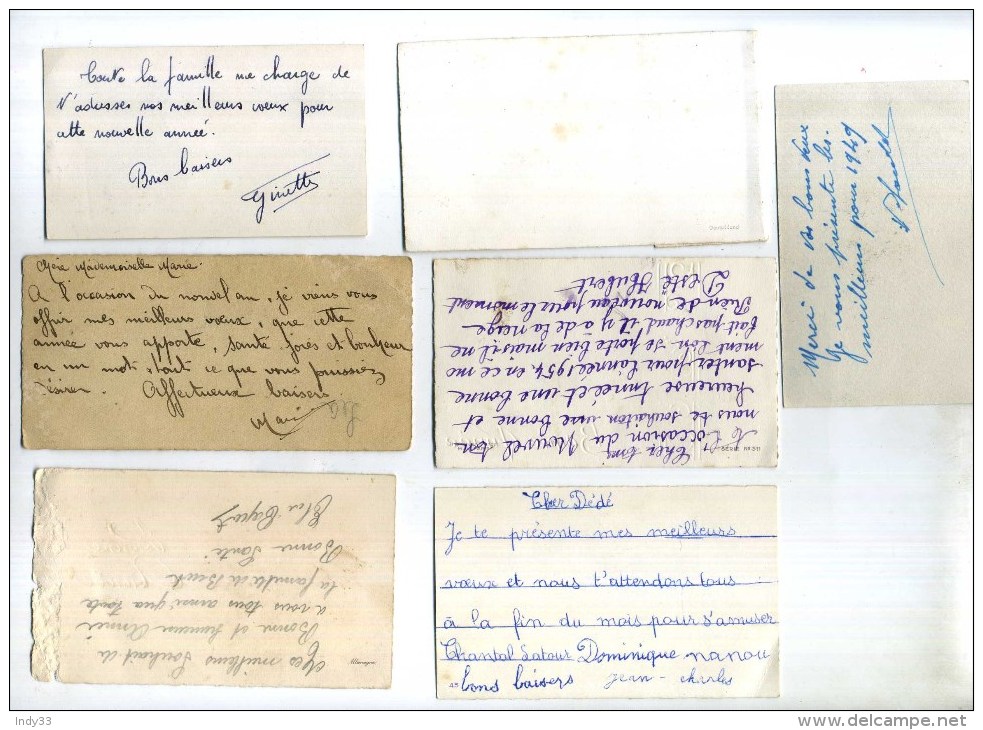 Toute la famille me charge de
t'adresser nos meilleurs voeux pour
cette nouvelle année.
Bons baisers
Ginette
Deutschland
Merci de vos bons vœux
Je vous présente les
meilleurs pour 1949
Chère Mademoiselle Marie.
A l'occasion du nouvel an, je viens vous
offrir mes meilleurs vœux, que cette
année vous apporte, santé joies et bonheur
en un mot, tout ce que vous puissiez
désirer. Affectueux baisers
Cher ami
A l'occasion du Nouvel ton
nous te souhaiton une bonne et
heureuse Année et une bonne
santer pour l'année 1954, en ce mo
ment ton se porte bien mais il ne
fait pas chaud il y a de la neige
Rien de nouveau pour le moment
Desté Hubert
SERIE Nº 311
Mes meilleurs Souhait de
Bonne et heureuse Année
a vous tous ainsi qua toute
la famille de
Bonne Santé
Cher Dédé
Je te présente mes meilleurs
vœux et nous t'attendons tous
à la fin du mois pour s'amuser
Chantal Latour Dominique nanou
bons baisers jean - charles
Indy33
www.delcampe.net